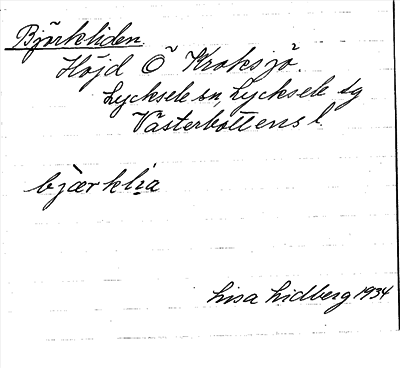 Björkliden
Höjd Ö Kroksjö.
Lycksele sn, Lycksele lg
Västerbottens l
Lisa Lidberg 1934